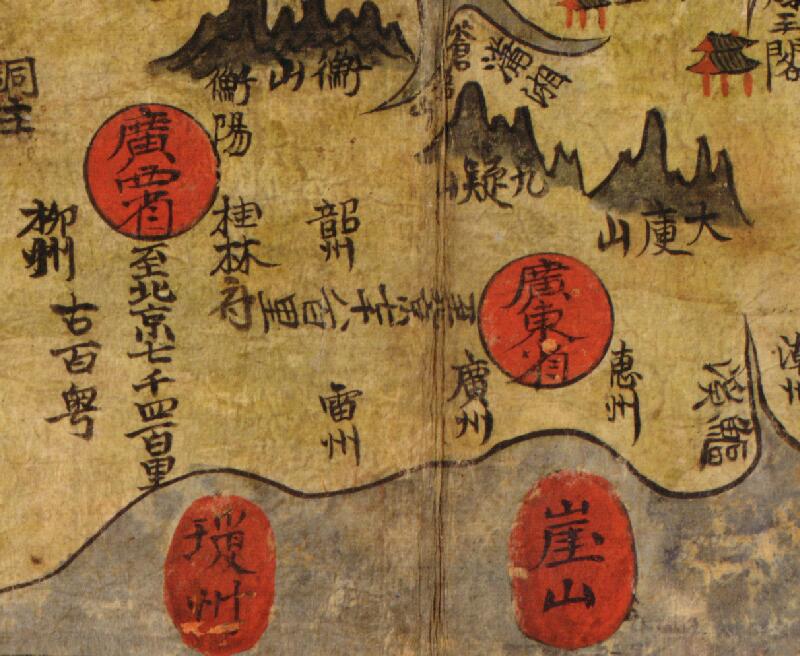 衡山
衡陽
蒼
瀟湘
閣
九疑山
大庾山
廣西省
至北京七千四百里
柳州
古百粤
桂林府
韶州
廣東省
至北京七千八百里
廣州
惠州
雷州
瓊州
崖山